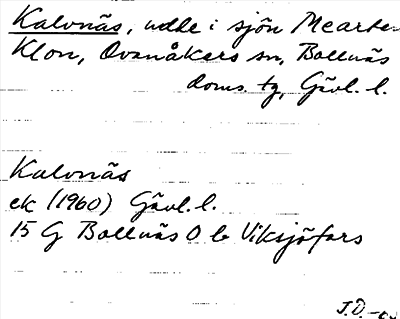 Kalvnäs, udde i sjön Mearten
Klon, Ovanåkers sn, Bollnäs
doms. tg, Gävl. l.
Kalvnäs
ek (1960) Gävl. l.
15 G Bollnäs O b Viksjöfors
J.D.